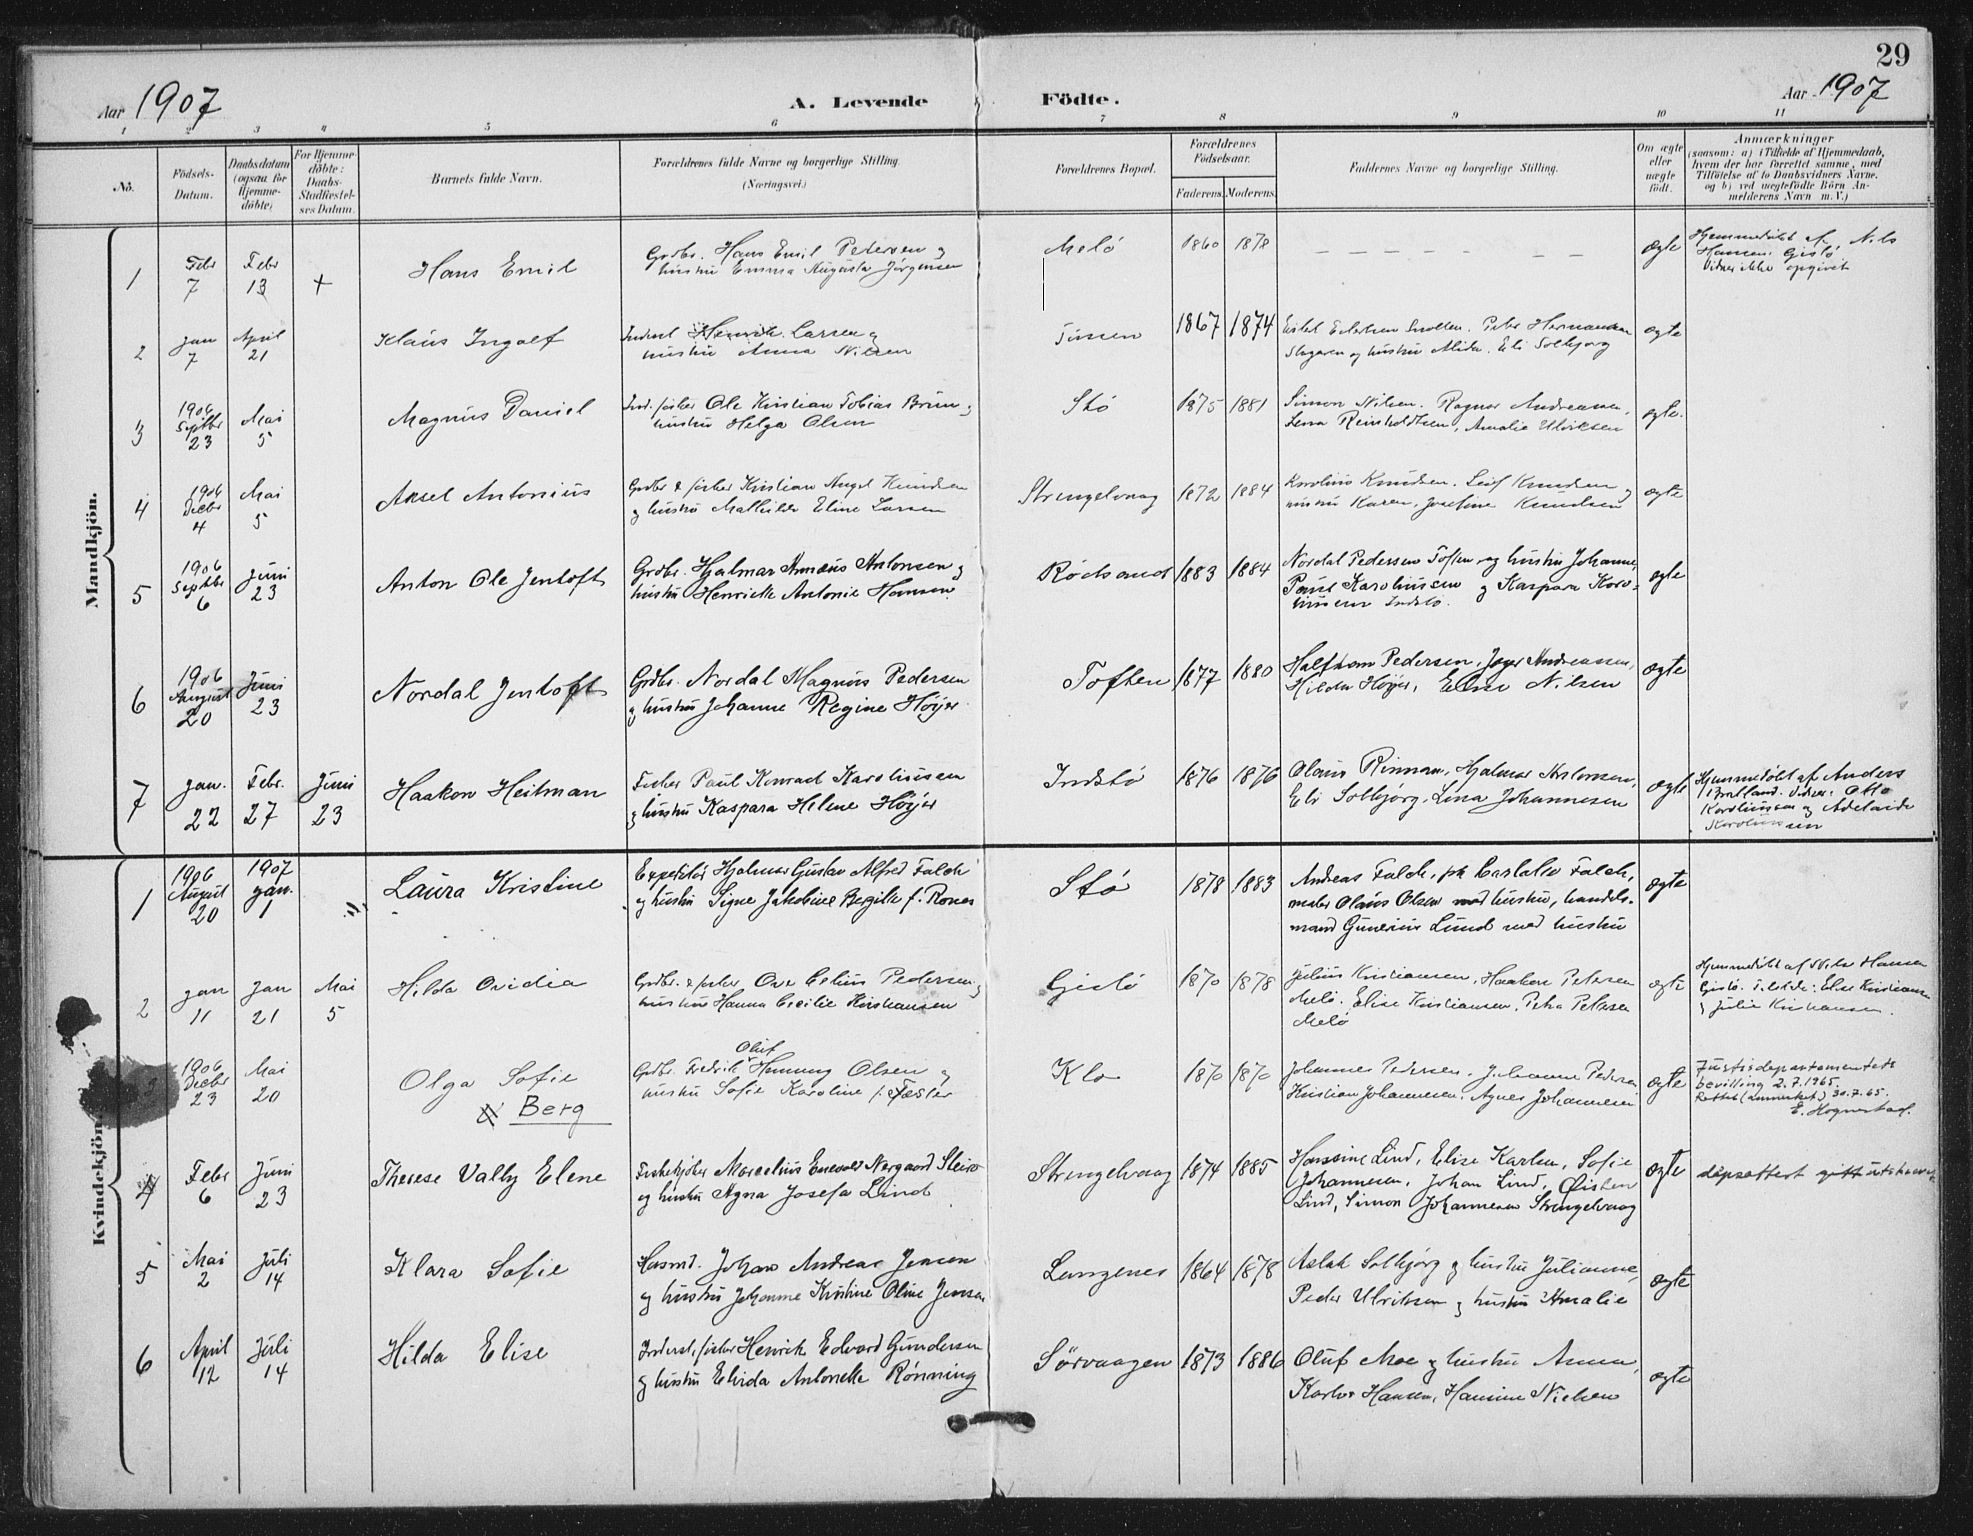 29
Aar 1907
A. Levende Födte.
Aar 1907
1 2 3 4 5 6 7 8 9 10 11
No.
Födsels-
Datum.
Daabsdatum
(ogsaa for
Hjemme-
döbte)
For Hjemme-
döbte:
Daabs-
Stadfæstel-
ses Datum.
Barnets fulde Navn.
Forældrenes fulde Navne og borgerlige Stilling.
(Næringsvei.)
Forældrenes Bopæl.
Forældrenes
Födselsaar.
Faderens. Moderens.
Faddernes Navne og borgerlige Stilling.
Om ægte
eller
uægte
födt.
Anmærkninger
(saasom: a) i Tilfælde af Hjemmedaab,
hvem der har forrettet samme, med
Tilföielse af to Daabsvidners Navne.
og b) ved uægtefödte Börn An-
melderens Navn m. V.)
Mandkjön.
1
Febr
7
Febr
13
+
Hans Emil
Grdbr. Hans Emil Pedersen og
hustru Emma Augusta Jørgensen
Melö
1860 1878
— — — — — —
ægte
Hjemmedöbt af Nils
Hansen Gislö
Vidner ikke opgivet
2
Jan
7
April
21
Klaus Ingolf
Inderst Henrik Larsen og
hustru Anna Nilsen
Tinsen
1867 1874
Peter Hermansen
og hustru Alida. Eli Solbjorg
ægte
3
1906
Septbr
23
Mai
5
Magnus Daniel
Ind. fisker Ole Kristian Tobias Brun og
hustru Helga Olsen
Stö
1875 1881
Simon Nilsen. Ragnar Andreassen,
Lena Reinholdtsen, Amalie Ulriksen
ægte.
4
1906
Decbr
4
Mai
5
Aksel Antonius
Grdbr & fisker Kristian Angel Knudsen
og hustru Mathilde Eline Larsen
Strengelvaag
1872 1884
Karolius Knudsen. Leif Knudsen og
hustru Karen, Josefine Knudsen
ægte
5
1906
Septbr
6
Juni
23
Anton Ole Jentoft
Grdbr. Hjalmar Annæus Antonsen og
hustru Henriette Antonie Hansen
Rödsand
1883 1884
Nordal Pedersen Toften og hustru Johanne,
Paul Karoliussen og Kaspara Karo-
liussen Indstö.
ægte
6
1906
August
20
Juni
23
Nordal Jentoft
Grdbr. Nordal Magnus Pedersen
og hustru Johanne Regine Höyer
Toften
1877 1880
Halfdan Pedersen, Andreassen,
Hilda Höyer, Elise Nilsen
ægte
7
Jan.
22
Febr.
27
Juni
23
Haakon Heitman
Fisker Paul Konrad Karoliussen
og hustru Kaspara Helene Höyer
Indstö
1876 1876
Olaus Rinman, Hjalmar Antonsen,
Eli Solbjørg, Lina Johannesen
ægte
Hjemmedöbt af Anders
Vidner: Otto
Karoliussen og Adelaide
Karoliussen
Kvindekjön.
1
1906
August
20
1907
Jan.
1
"
Laura Kristine
Expeditör Hjalmar Gustav Alfred Falch
og hustru Signe Jakobine Bergitte f. Rones
Stö
1878 1883
Andreas Falch, frk Carlotte Falch,
maler Olaus Olsen med hustru, handels-
mand Gunerius Lund med hustru
ægte
2
Jan
11
Jan
21
Mai
5
Hilda Ovidia
Grdbr. & fisker Ove Celius Pedersen og
hustru Hanna Cecilie Kristiansen
Gislö
1870 1878
Julius Kristiansen, Haakon Petersen
Melö. Elise Kristiansen, Petra Petersen
Melö
ægte
Hjemmedöbt af Nils Hansen
Gislö. Elise Kristiansen
og Julie Kristiansen.
3
1906
Decbr
23
Mai
20
Olga Sofie
Berg
Oluf
Grdbr. Fredrik Henning Olsen og
hustru Sofie Karoline f. Fæster
Klo
1870 1870
Johannes Pedersen. Johanne Pedersen
Kristian Johannesen, Agnes Johannesen
ægte
Justisdepartementets
bevilling 2.7.1965.
Rettet (anmerket) 30.7.65.
E. Hognestad.
4
Febr
6
Juni
23
Therese Valby Elene
Fiskekjöber Marcelius Enevold Nergaard Steiro
og hustru Agna Josefa Lind
Strengelvaag
1874 1885
Hansine Lind, Elise Karlsen, Sofie
Johannesen, Johan Lind, Øisten
Lind, Simon Johannesen Strengelvaag
ægte
5
Mai
2
Juli
14
Klara Sofie
Husmd. Johan Andreas Jensen
og hustru Johanne Kristine Oline Jensen
Langenes
1864 1878
Aslak Solbjørg og hustru Julianne,
Peder Ulriksen og hustru Amalie
ægte
6
April
12
Juli
14
Hilda Elise
Inderst, fisker Henrik Edvard Gundersen
og hustru Elvida Antonette Rønning
Sörvaagen
1873 1886
Oluf Moe og hustru Anna,
Karlos Hansen, Hansine Nielsen
ægte